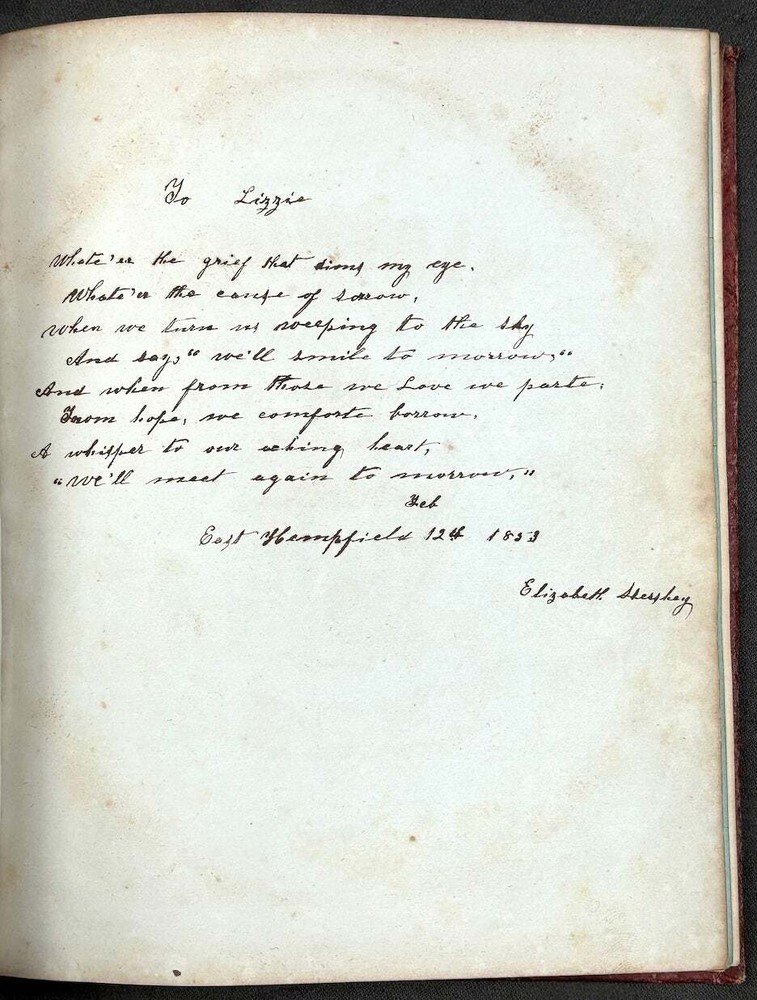 To Lizzie
Whate'er the grief that dims my eye.
Whate'er the cause of sorrow,
When we turn us weeping to the sky
And say, "we'll smile to morrow,"
And when from those we Love we parte,
From hope, we comforte borrow.
A whisper to our aching heart,
"We'll meet again to morrow,"
Feb
East Hempfield 12th 1853
Elizabeth Hershey